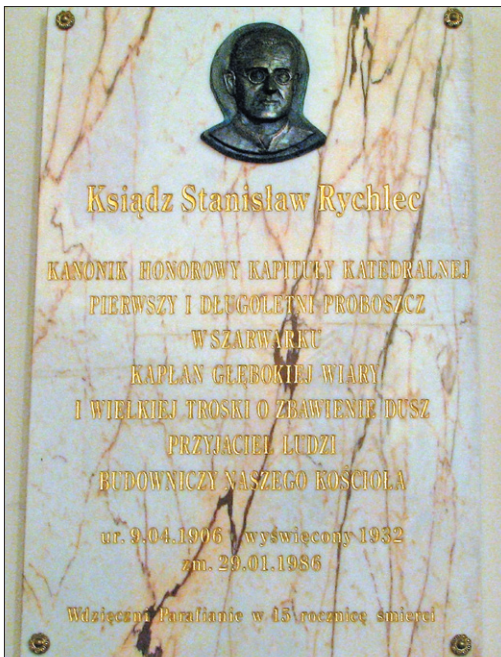 Ksiądz Stanisław Rychlec
KANONIK HONOROWY KAPITUŁY KATEDRALNEJ
PIERWSZY I DŁUGOLETNI PROBOSZCZ
W SZARWARKU
KAPŁAN GŁĘBOKIEJ WIARY
I WIELKIEJ TROSKI O ZBAWIENIE DUSZ
PRZYJACIEL LUDZI
BUDOWNICZY NASZEGO KOŚCIOŁA
ur. 9.04.1906 wyświęcony 1932
zm. 29.01.1986
Wdzięczni Parafianie w 15 rocznicę śmierci